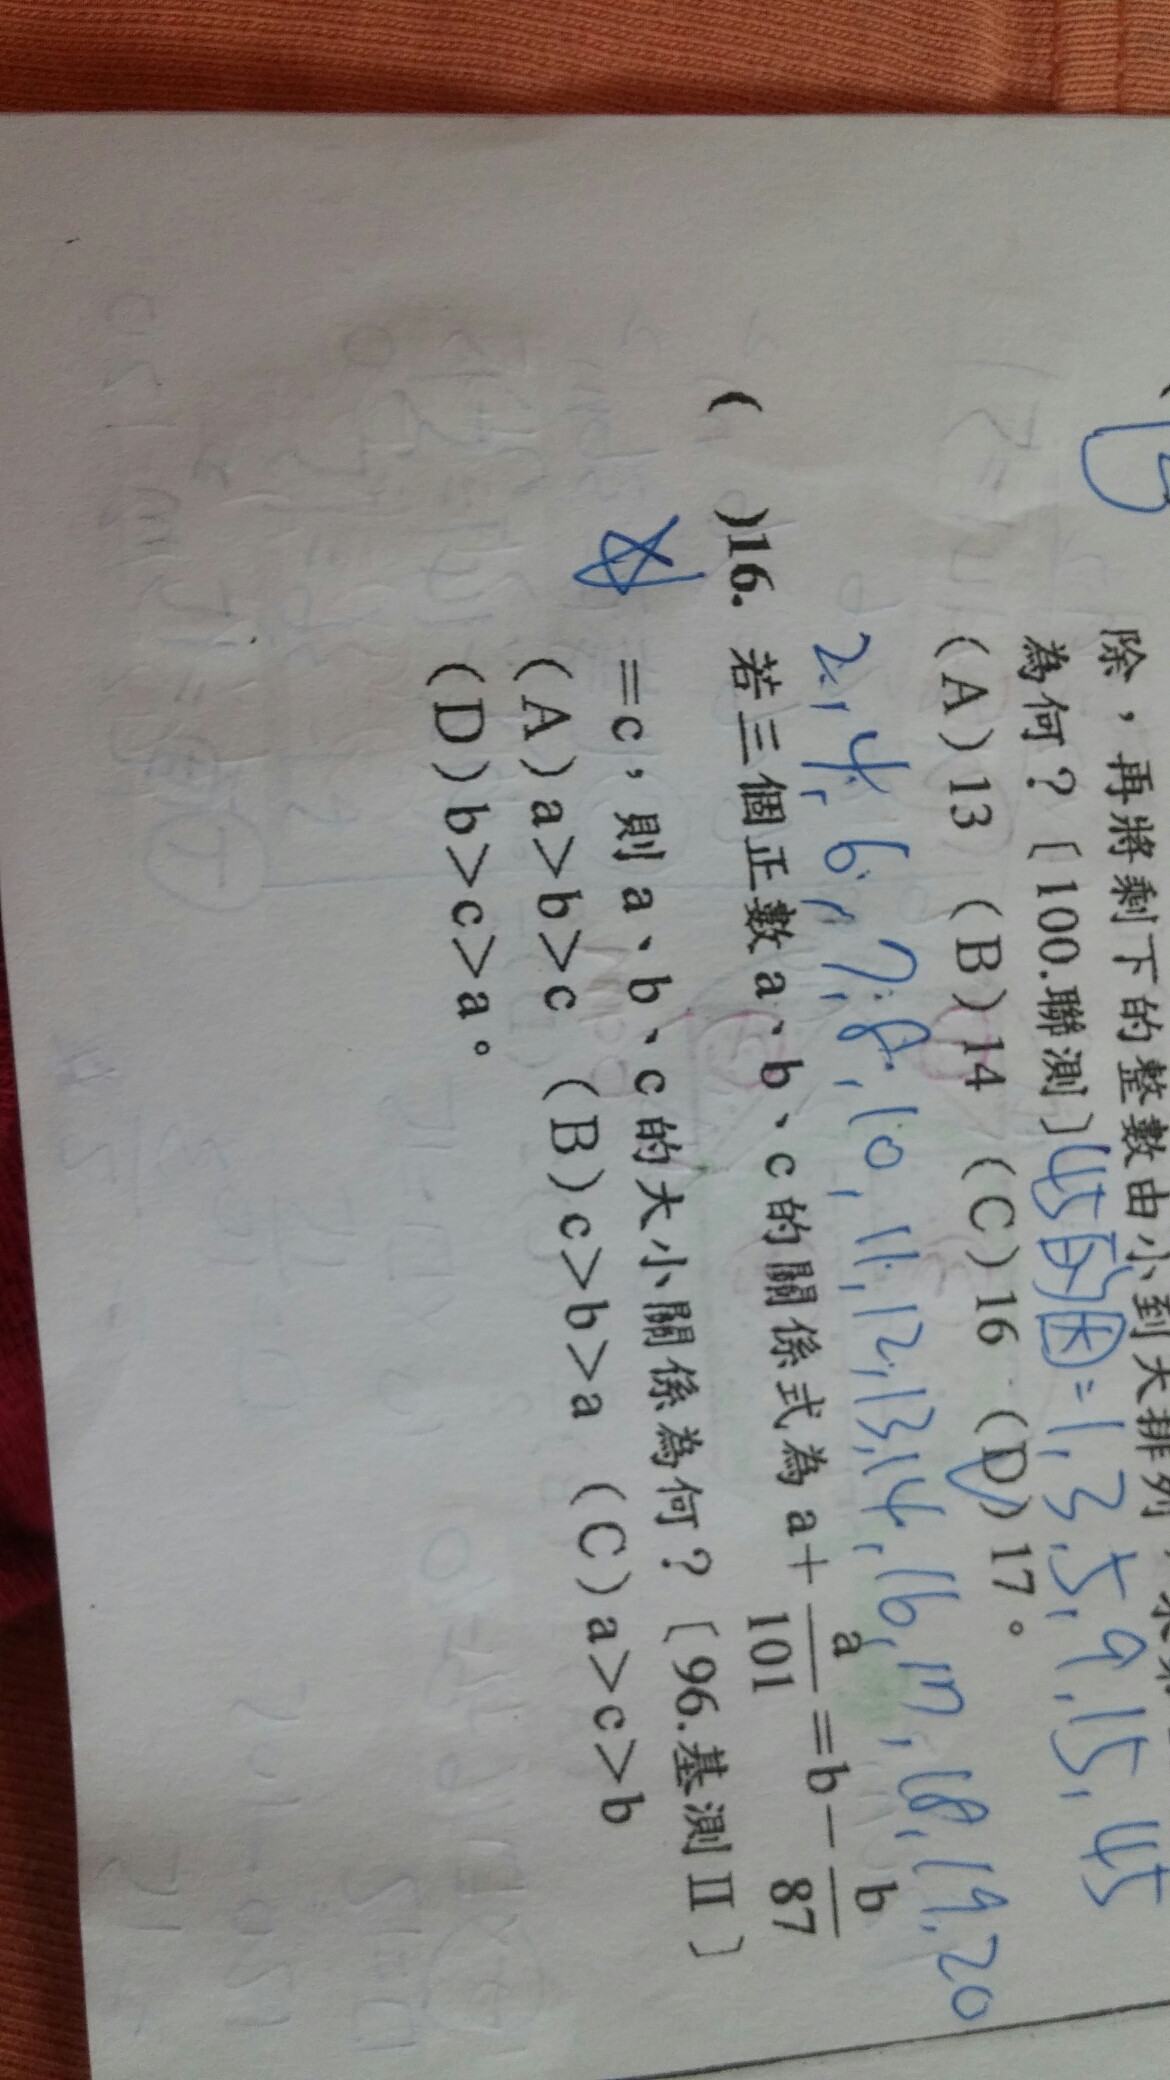 除,再將剩下的整數由小到大排列
為何?〔100.聯測〕45的因=1,3,5,9,15,45
(A)13 (B)14 (C)16 (D)17。
2,4,6,7,8,10,11,12,13,14,16,17,18,19,20
( )16. 若三個正數a、b、c的關係式為a+a/101=b-b/87
=c,則a、b、c的大小關係為何?〔96.基測II〕
(A)a>b>c (B)c>b>a (C)a>c>b
(D)b>c>a。